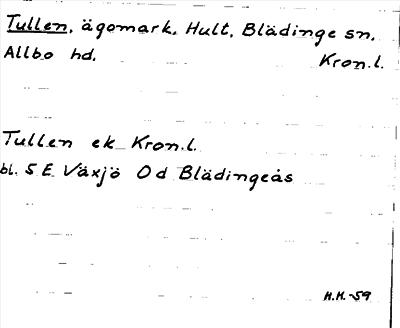 Tullen, ägomark. Hult, Blädinge sn.
Allbo hd. Kron.l.
Tullen ek Kron.l.
bl. 5 E Växjö Od Blädingeås
H.H.-59